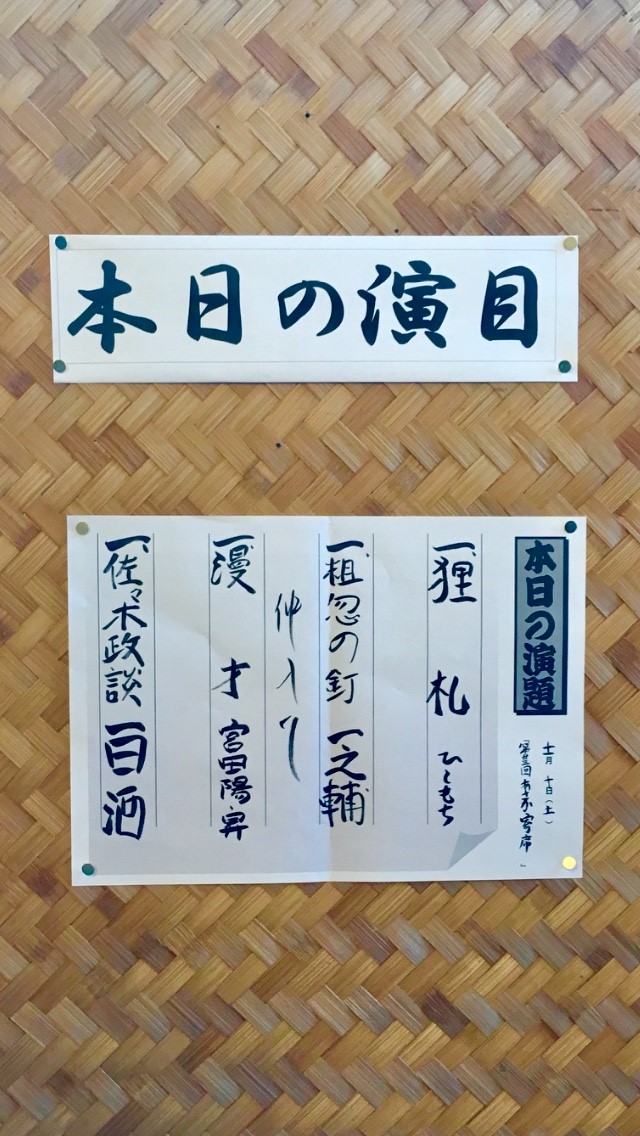 本日の演目
本日の演題
十一月 十日（土）
「第廿三回 あさか寄席」
一、狸札 ひともち
一、粗忽の釘 一之輔
仲入り
一、漫才 宮田陽・昇
一、佐々木政談 白酒